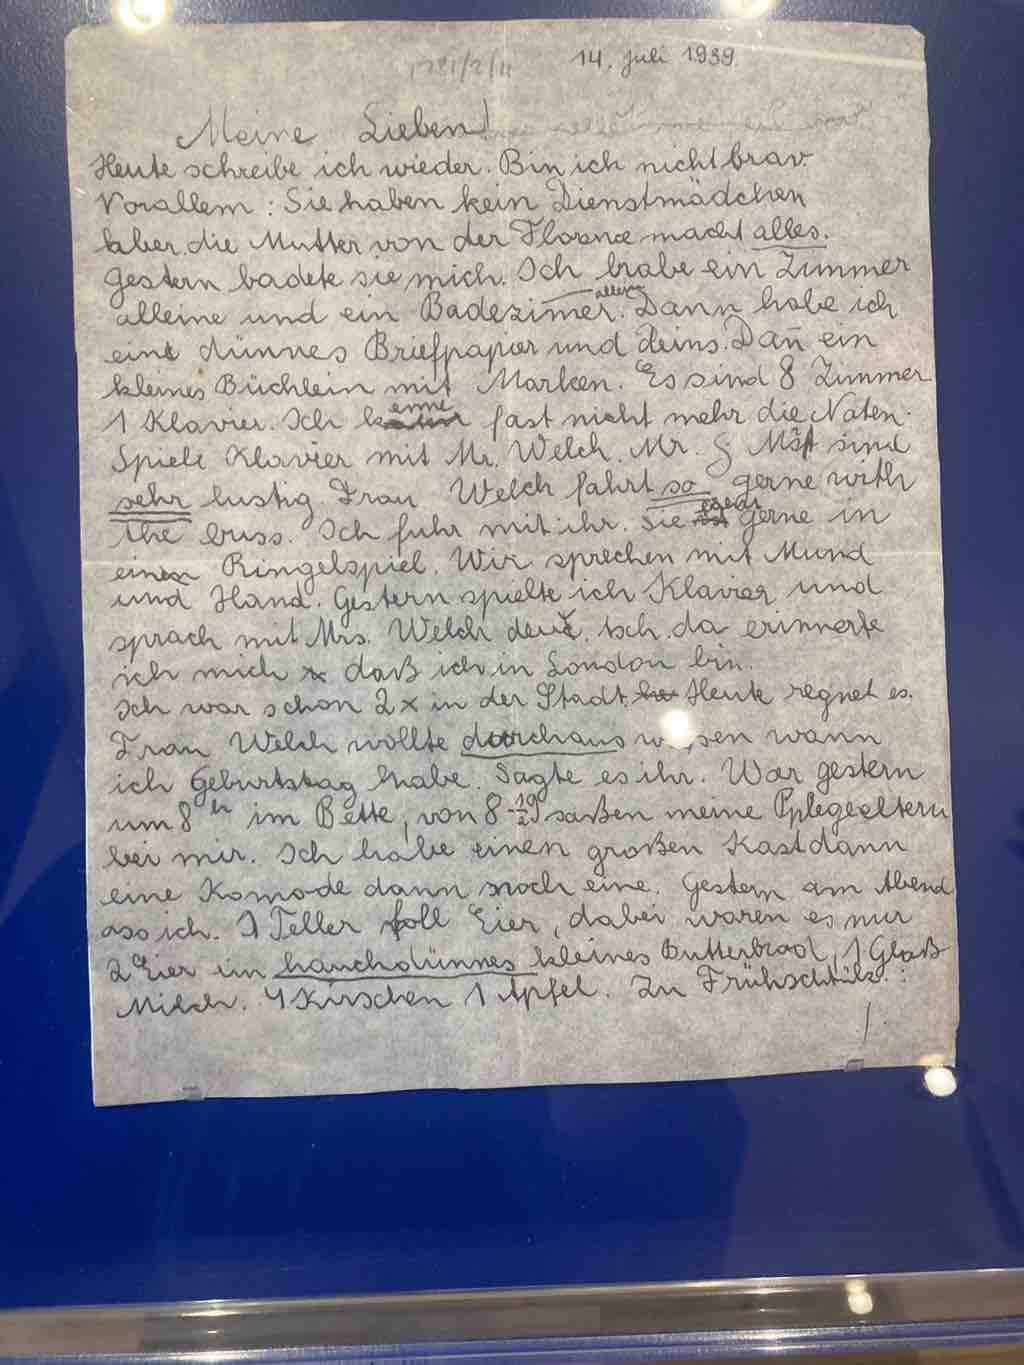 1781/2/11 14. Juli 1939
Meine Lieben!
Heute schreibe ich wieder. Bin ich nicht brav.
Vorallem: Sie haben kein Dienstmädchen
aber die Mutter von der Florence macht alles.
Gestern badete sie mich. Ich habe ein Zimmer
alleine und ein Badezimer. allein Dann habe ich
eine dünnes Briefpapier und deins. Dan̄ ein
kleines Büchlein mit Marken. Es sind 8 Zimmer
1 Klavier. Ich kenne fast nicht mehr die Noten.
Spiele Klavier mit Mr. Welch. Mr. & sind
sehr lustig. Frau Welch fahrt so gerne with
the buss. Ich fuhr mit ihr. Sie gerne in
einen Ringelspiel. Wir sprechen mit Mund
und Hand. Gestern spielte ich Klavier und
sprach mit Mrs. Welch da erinnerte
ich mich daß ich in London bin.
Ich war schon 2x in der Stadt. Heute regnet es.
Frau Welch wollte durchaus wissen wann
ich Geburtstag habe. Sagte es ihr. War gestern
um 8 h im Bette, von 8-½9 saßen meine Pflegeeltern
bei mir. Ich habe einen großen Kast dann
eine Komode dann noch eine. Gestern am Abend
aso ich. 1 Teller foll Eier, dabei waren es nur
2 Eier im hauchdünnes kleines Butterbrod, 1 Glaß
Milch. 4 Kirschen 1 Apfel. Zu Frühschtük: